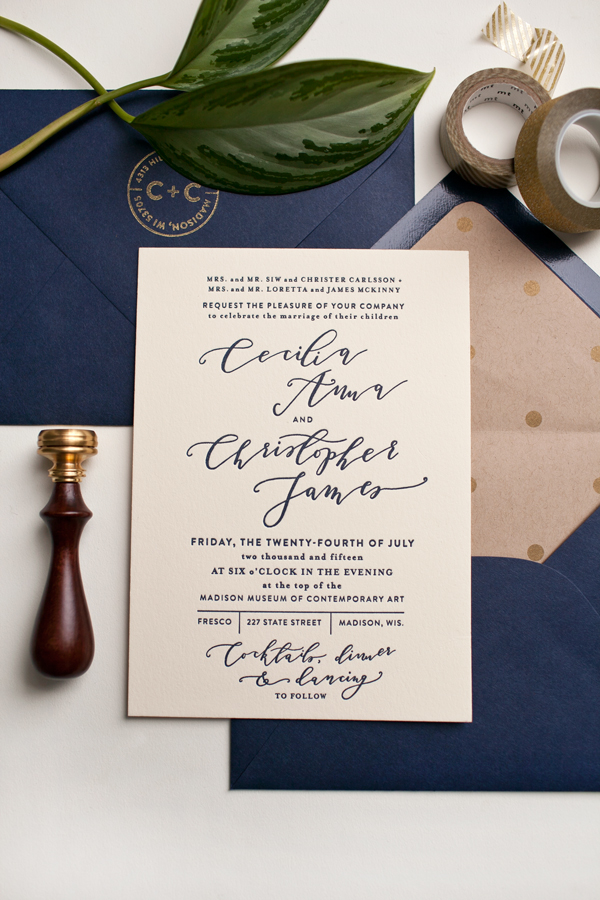 4313 HIL
C+C
MADISON, WI 53705
mt
mt
MRS. and MR. SIW and CHRISTER CARLSSON +
MRS. and MR. LORETTA and JAMES MCKINNY
REQUEST THE PLEASURE OF YOUR COMPANY
to celebrate the marriage of their children
Cecilia
Anna
AND
Christopher
James
FRIDAY, THE TWENTY-FOURTH OF JULY
two thousand and fifteen
AT SIX o'CLOCK IN THE EVENING
at the top of the
MADISON MUSEUM OF CONTEMPORARY ART
FRESCO 227 STATE STREET MADISON, WIS.
Cocktails, dinner
& dancing
TO FOLLOW